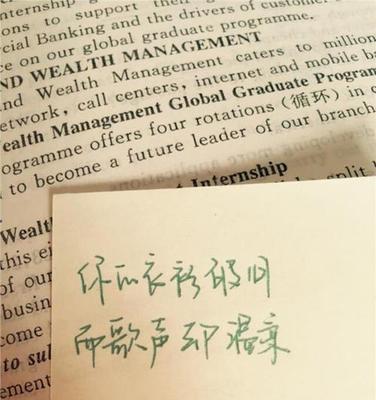 internship g
ions to support thei
cial Banking and the drivers of customer
ce on our global graduate programme.
ND WEALTH MANAGEMENT
and Wealth Management caters to million
etwork, call centers, internet and mobile ba
ealth Management Global Graduate Program
ogramme offers four rotations (循环) in c
to become a future leader of our branch
Wealth t Internship
this ei split
of our
busin
come
to sul
ement
你的衣衫破旧
而歌声却温柔